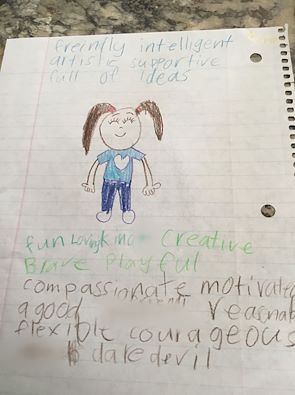 freinfly intelligent
artistic supportive
full of ideas
fun Loving Creative
Brave Playful
compassionate motivated
a good
flexible courageous
daredevil